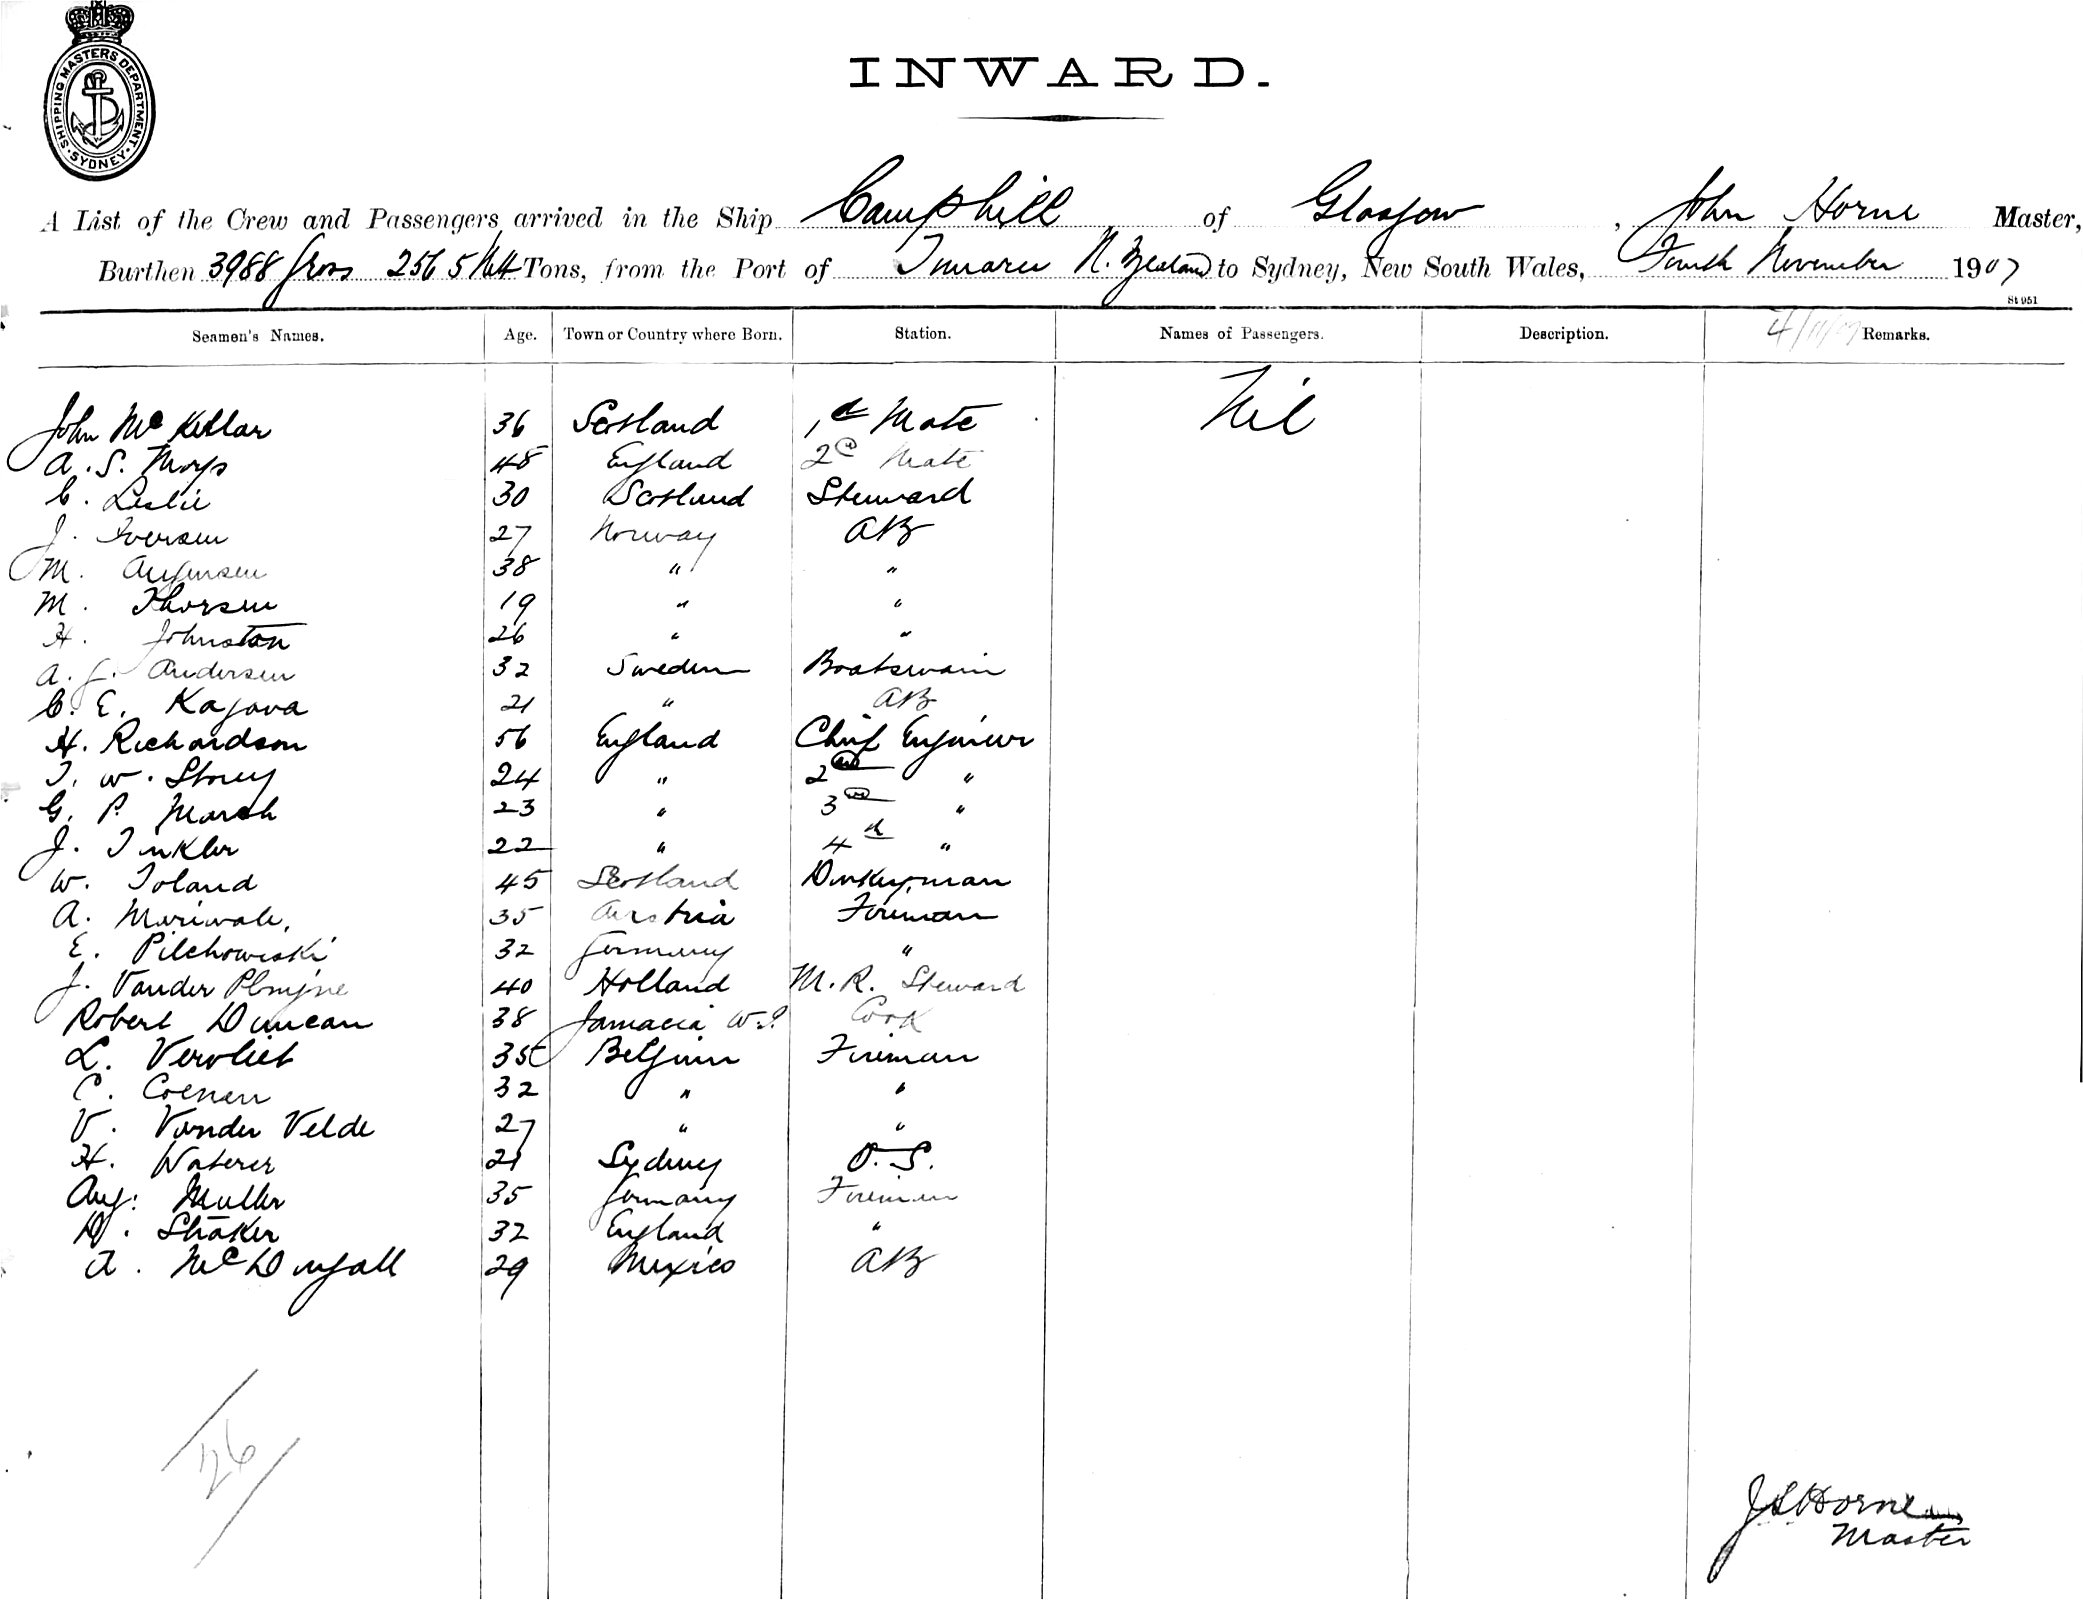 SHIPPING MASTERS DEPARTMENT
SYDNEY
INWARD.
A List of the Crew and Passengers arrived in the Ship Camphill of Glasgow, John Horne Master,
Burthen 3988 Gross 2565 Nett Tons, from the Port of Timaru N. Zealand to Sydney, New South Wales, Fourth November 1907
St 951
Seamen's Names. Age. Town or Country where Born. Station. Names of Passengers. Description. 4/11/07 Remarks.
John McKellar 36 Scotland 1st Mate Nil
A. S. 48 England 2nd Mate
C. Leslie 30 Scotland Steward
J. Iversen 27 Norway AB
M. 38 " "
M. Thorsen 19 " "
H. Johnston 26 " "
A. J. Andersen 32 Sweden Boatswain
C. E. Kajava 21 " AB
H. Richardson 56 England Chief Engineer
T. W. Storey 24 " 2nd "
G. P. Marsh 23 " 3rd "
J. Tinkler 22 " 4th "
W. Toland 45 Scotland Donkeyman
A. 35 Austria Fireman
E. Pilchowski 32 Germany "
J. Vander 40 Holland M. R. Steward
Robert Duncan 38 Jamacia W.I. Cook
L. Vervliet 35 Belgium Fireman
C. Coenen 32 " "
V. Vander Velde 27 " "
H. Waterer 21 Sydney O. S.
Aug: Muller 35 Germany Fireman
D. Straker 32 England "
A. McDugall 29 Mexico AB
26
J S Horne
Master